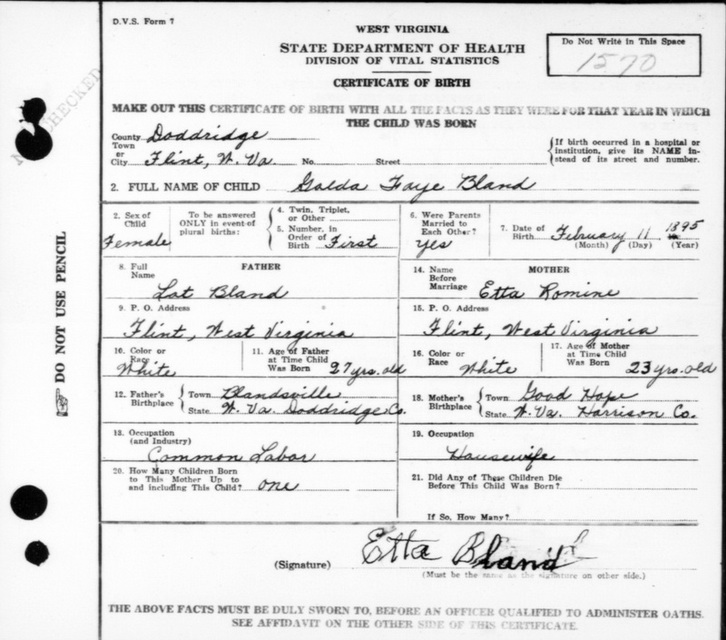 D.V.S. Form 7
WEST VIRGINIA
STATE DEPARTMENT OF HEALTH
DIVISION OF VITAL STATISTICS
CERTIFICATE OF BIRTH
Do Not Write in This Space
1570
MAKE OUT THIS CERTIFICATE OF BIRTH WITH ALL THE FACTS AS THEY WERE FOR THAT YEAR IN WHICH
THE CHILD WAS BORN
CHECKED
County Doddridge
Town or City Flint, W. Va. No. Street
{If birth occurred in a hospital or institution, give its NAME instead of its street and number.
2. FULL NAME OF CHILD Galda Faye Bland
2. Sex of Child Female
To be answered ONLY in event of plural births:
4. Twin, Triplet, or Other
5. Number, in Order of Birth First
6. Were Parents Married to Each Other? Yes
7. Date of Birth February 11 1895
(Month) (Day) (Year)
FATHER
8. Full Name Lot Bland
9. P. O. Address
Flint, West Virginia
10. Color or Race White
11. Age of Father at Time Child Was Born 27 yrs. old
12. Father's Birthplace { Town Blandsville
State W. Va. Doddridge Co.
13. Occupation (and Industry)
Common Labor
20. How Many Children Born to This Mother Up to and including This Child? one
MOTHER
14. Name Before Marriage Etta Romine
15. P. O. Address
Flint, West Virginia
16. Color or Race White
17. Age of Mother at Time Child Was Born 23 yrs. old
18. Mother's Birthplace { Town Good Hope
State W. Va. Harrison Co.
19. Occupation
Housewife
21. Did Any of These Children Die Before This Child Was Born?
If So, How Many?
(Signature) Etta Bland
(Must be the name as the signature on other side.)
THE ABOVE FACTS MUST BE DULY SWORN TO, BEFORE AN OFFICER QUALIFIED TO ADMINISTER OATHS.
SEE AFFIDAVIT ON THE OTHER SIDE OF THIS CERTIFICATE.
DO NOT USE PENCIL